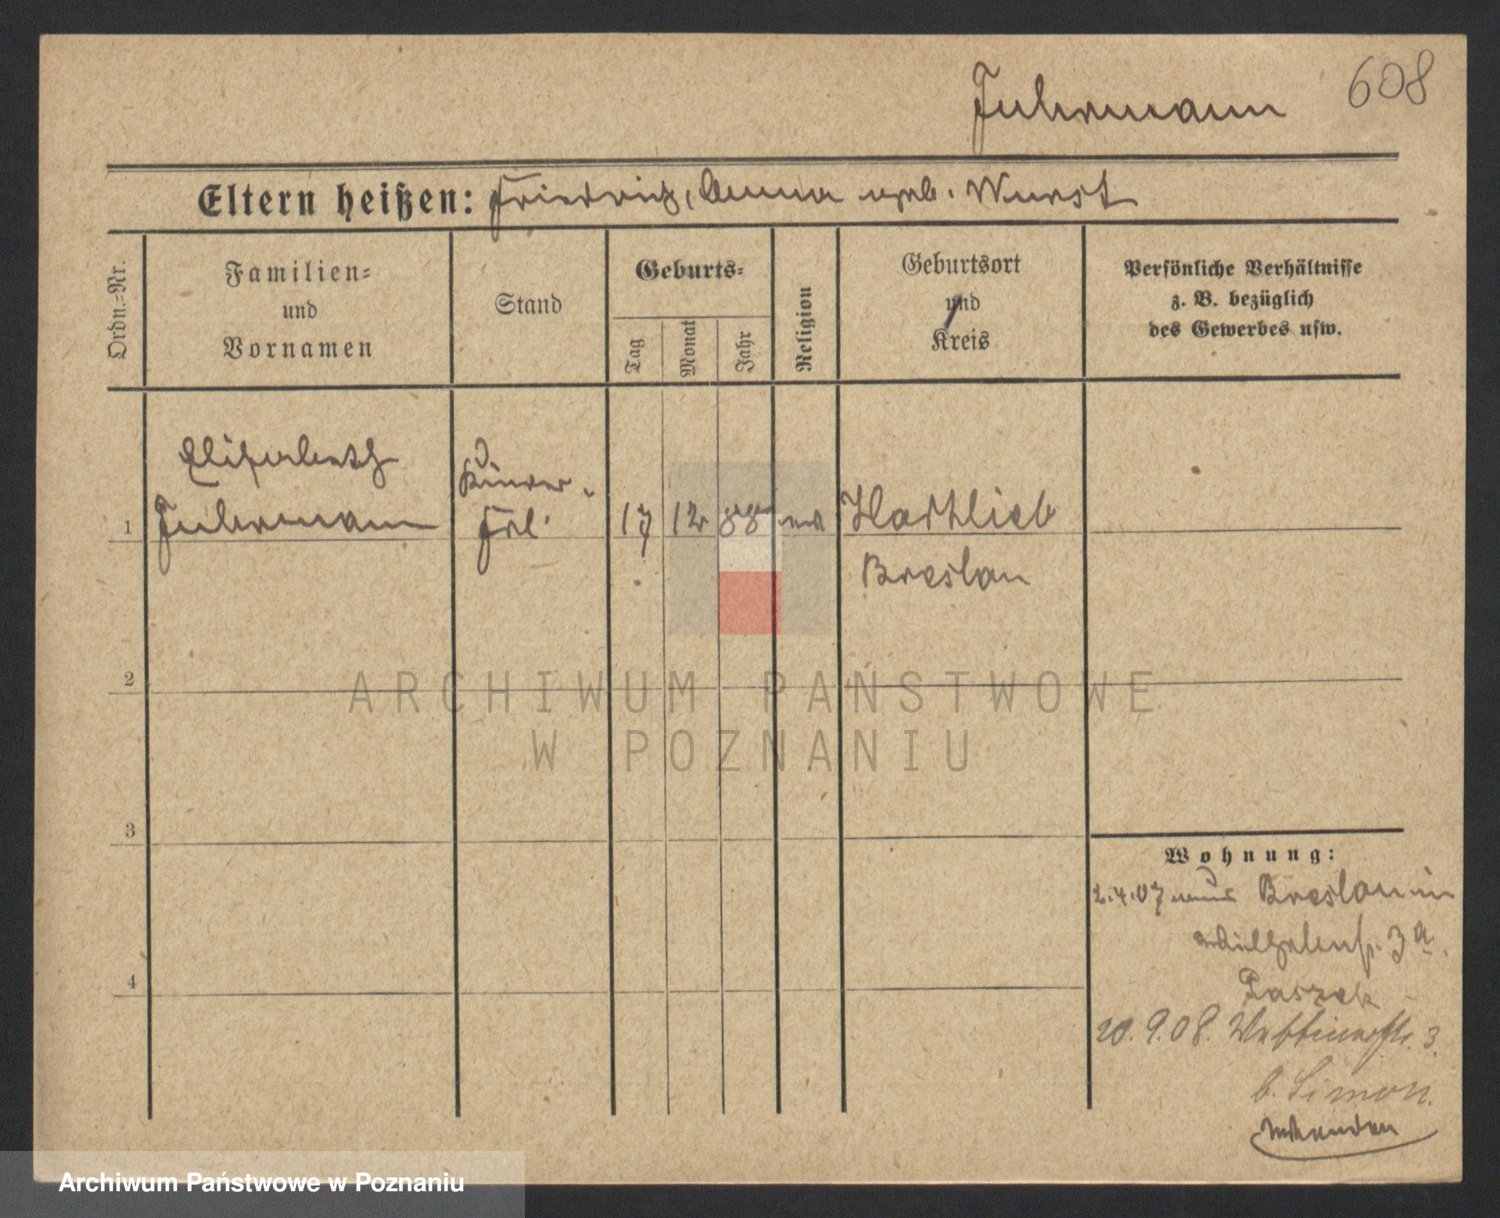 608
Fuhrmann
Eltern heißen: Friedrich, Anna geb. Wurst
Ordn.-Nr.
Familien-
und
Vornamen
Stand
Geburts-
Tag
Monat
Jahr
Religion
Geburtsort
und
Kreis
Persönliche Verhältnisse
z. B. bezüglich
des Gewerbes usw.
Elisabeth
Kinder-
1 Fuhrmann Frl. 17 12 88 ev Hartlieb
Breslau
2
ARCHIWUM PAŃSTWOWE
W POZNANIU
3
Wohnung:
2.4.07 aus Breslau in
3a.
4
Paszek
20.9.08. 3.
b. Simon.
Archiwum Państwowe w Poznaniu